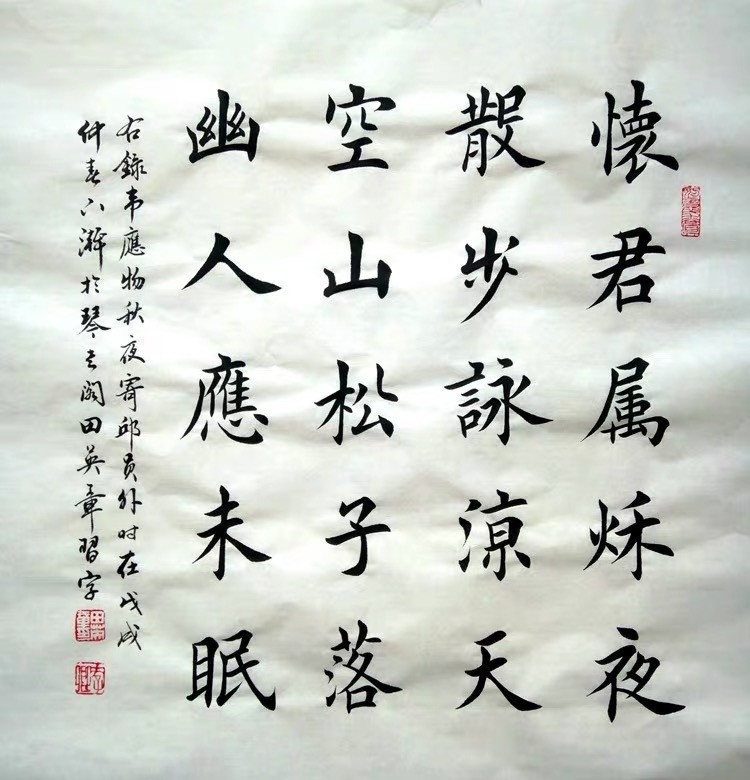 懷君属秋夜
散步詠涼天
空山松子落
幽人應未眠
右錄韋應物秋夜寄邱員外时在戊戌
仲春下澣於琴阁田英章習字